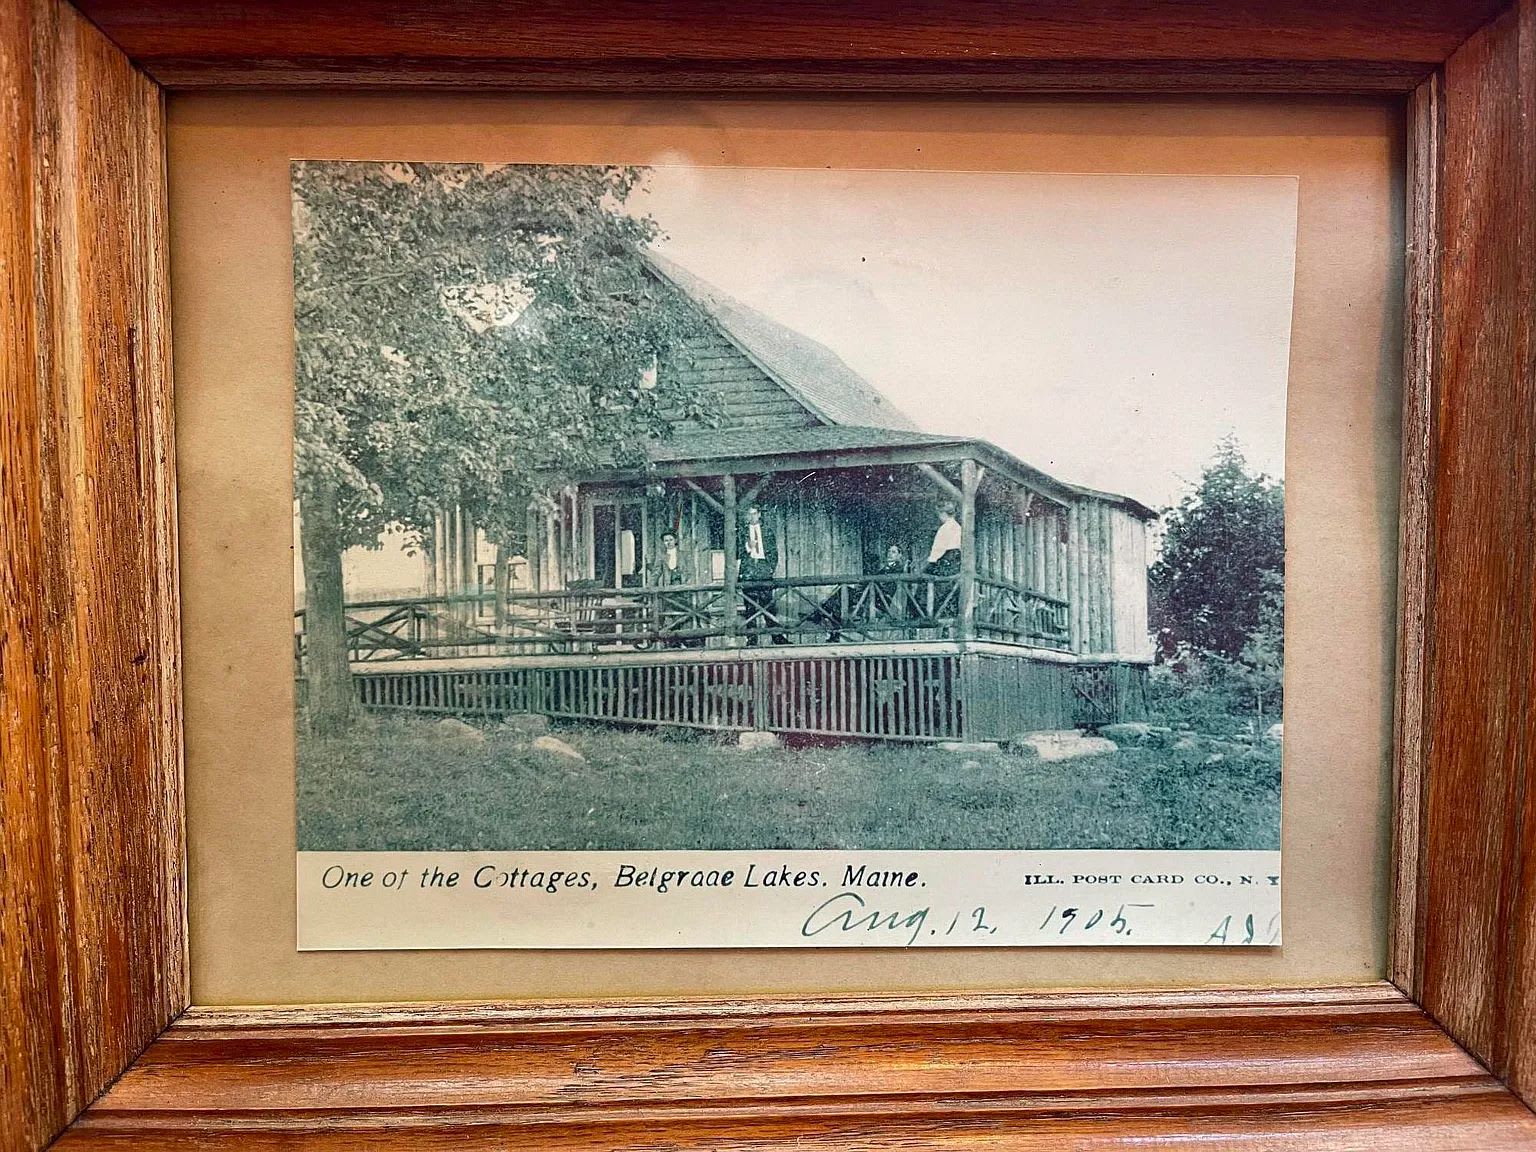 One of the Cottages, Belgrade Lakes. Maine.
ILL. POST CARD CO., N. Y
Aug. 12, 1905.